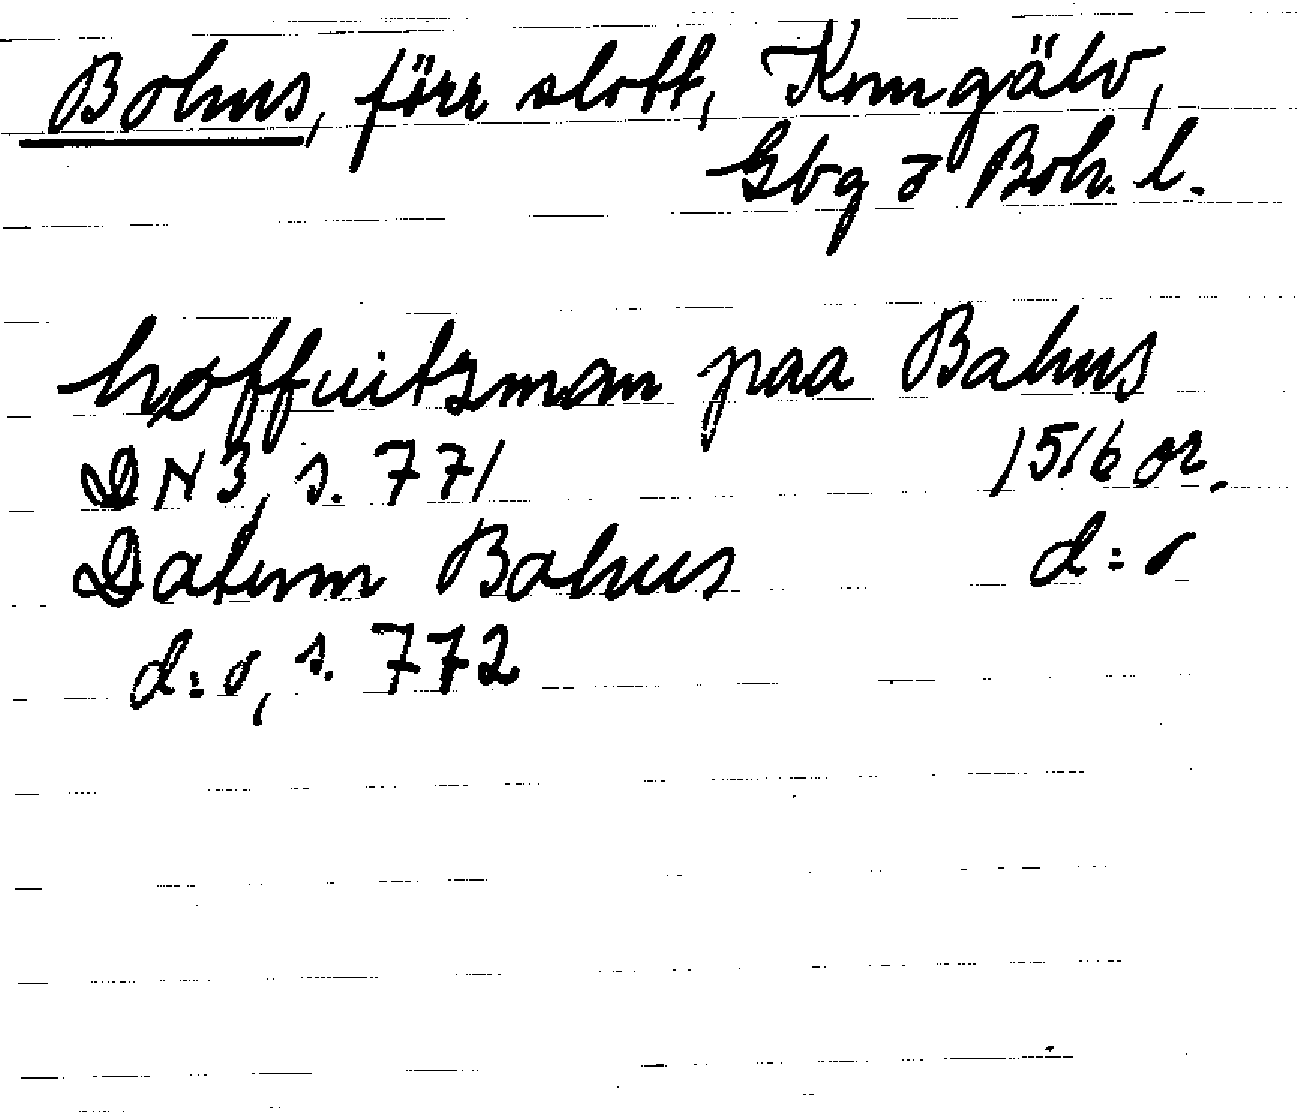 Bohus, förr slott, Kungälv,
Gbg o Boh. l.
høffuitzman paa Bahus
DN 3, s. 771 1516 or.
Datum Bahus d:o
d:o, s. 772